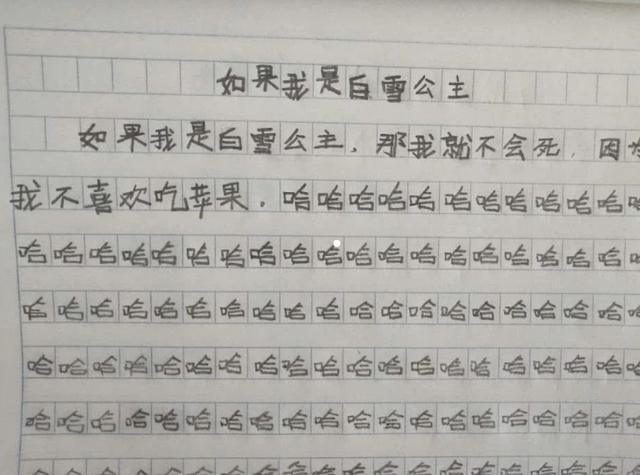 如果我是白雪公主
如果我是白雪公主，那我就不会死，因
我不喜欢吃苹果。哈哈哈哈哈哈哈哈哈哈哈
哈哈哈哈哈哈哈哈哈哈哈哈哈哈哈哈哈哈哈
哈哈哈哈哈哈哈哈哈哈哈哈哈哈哈哈哈哈哈
哈哈哈哈哈哈哈哈哈哈哈哈哈哈哈哈哈哈哈
哈哈哈哈哈哈哈哈哈哈哈哈哈哈哈哈哈哈哈